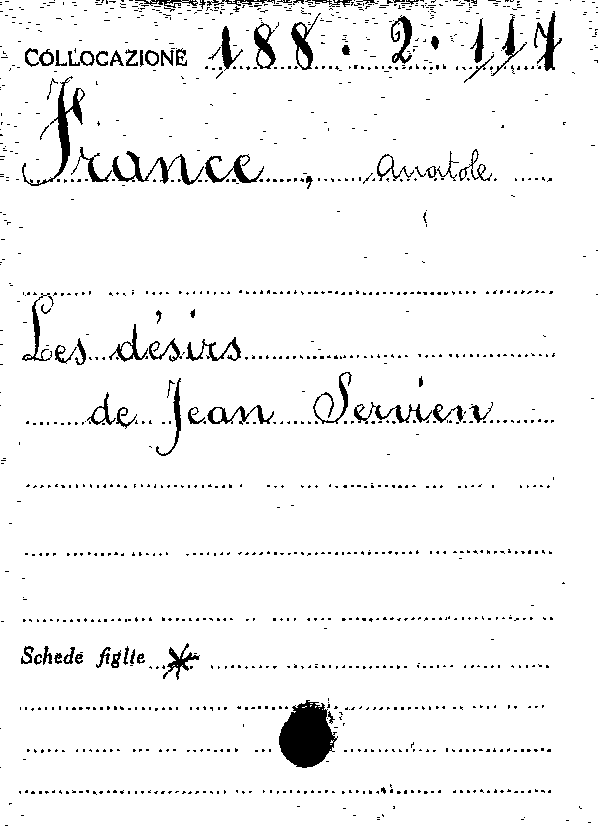 COLLOCAZIONE 188.2.117
France, Anatole
Les désirs
de Jean Servien
Schede figlie *